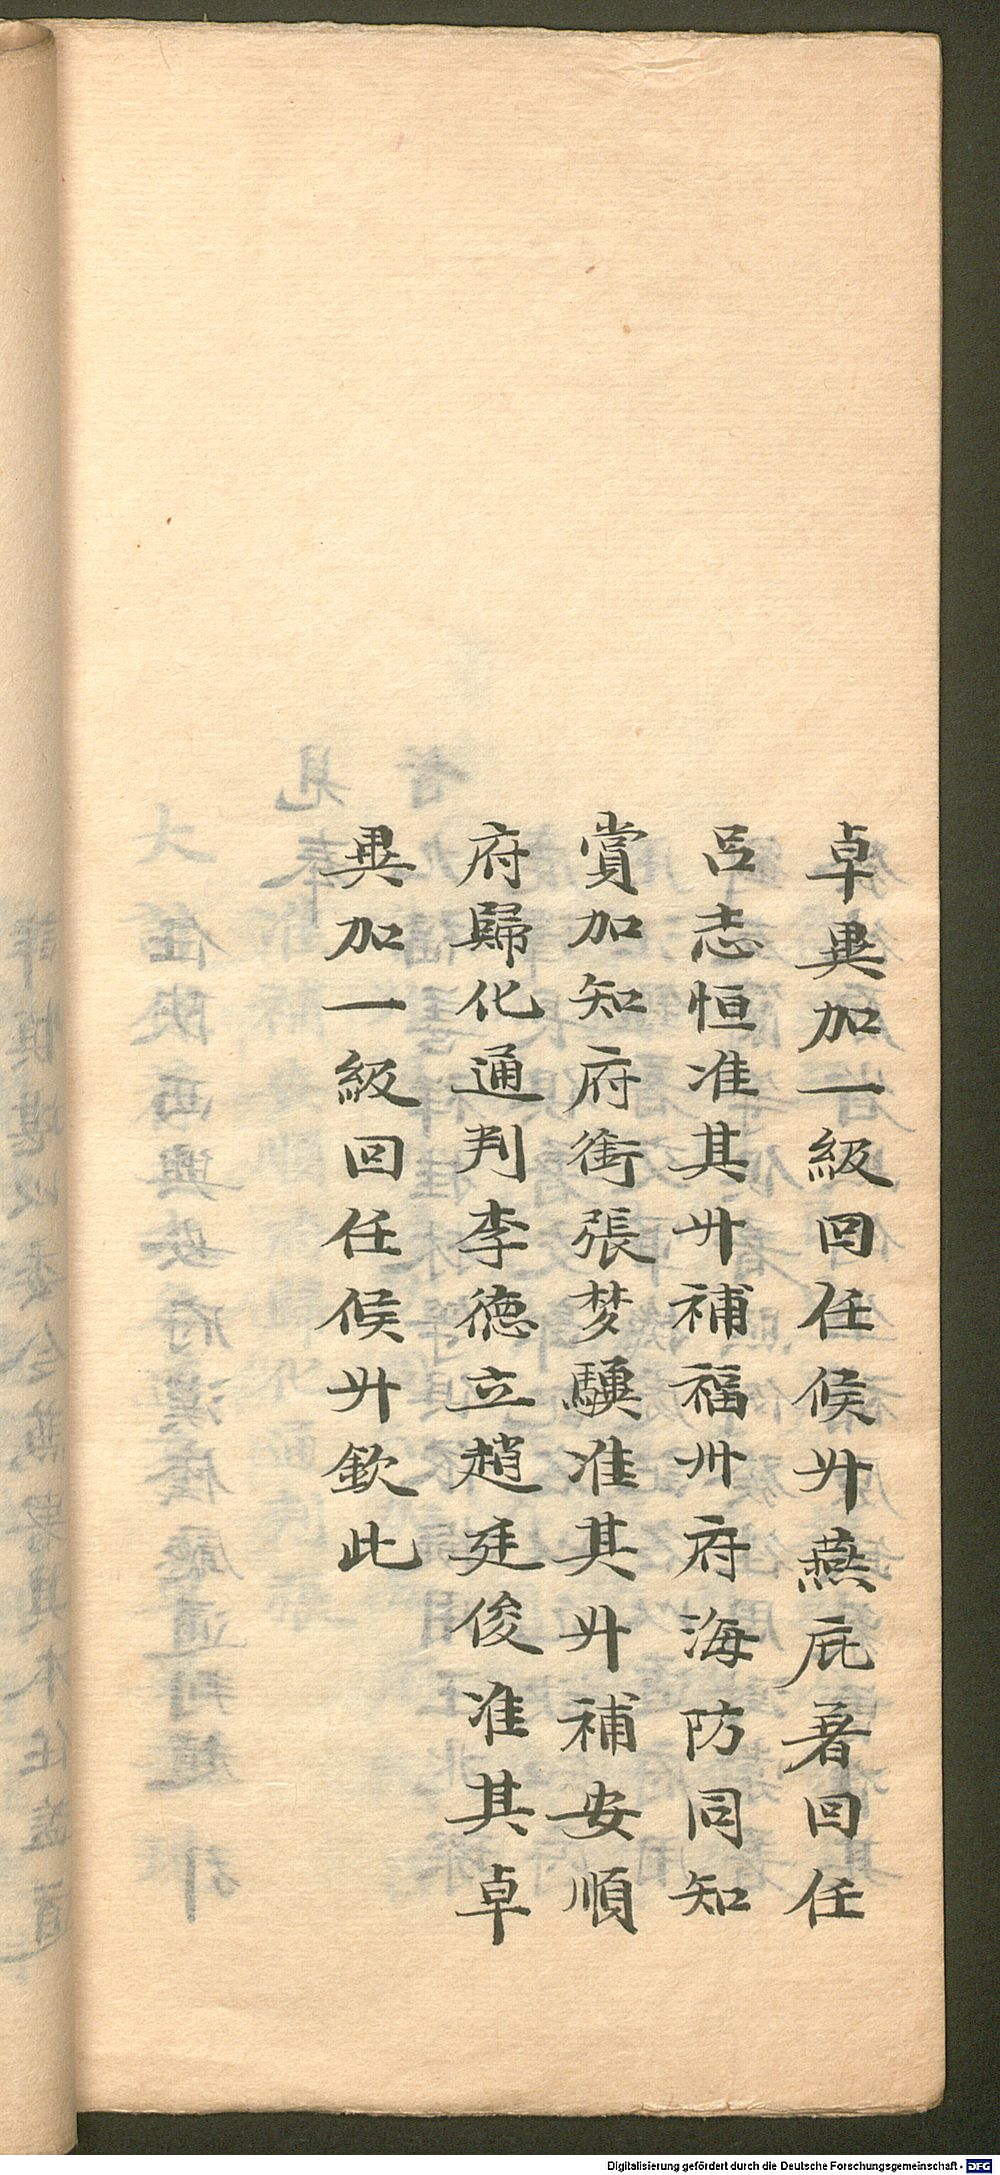 卓異加一級回任候升燕庇著回任
呂志恒准其升補福州府海防同知
賞加知府銜張梦驥准其升補安順
府歸化通判李德立趙廷俊准其卓
異加一級回任候升欽此
Digitalisierung gefördert durch die Deutsche Forschungsgemeinschaft - DFG